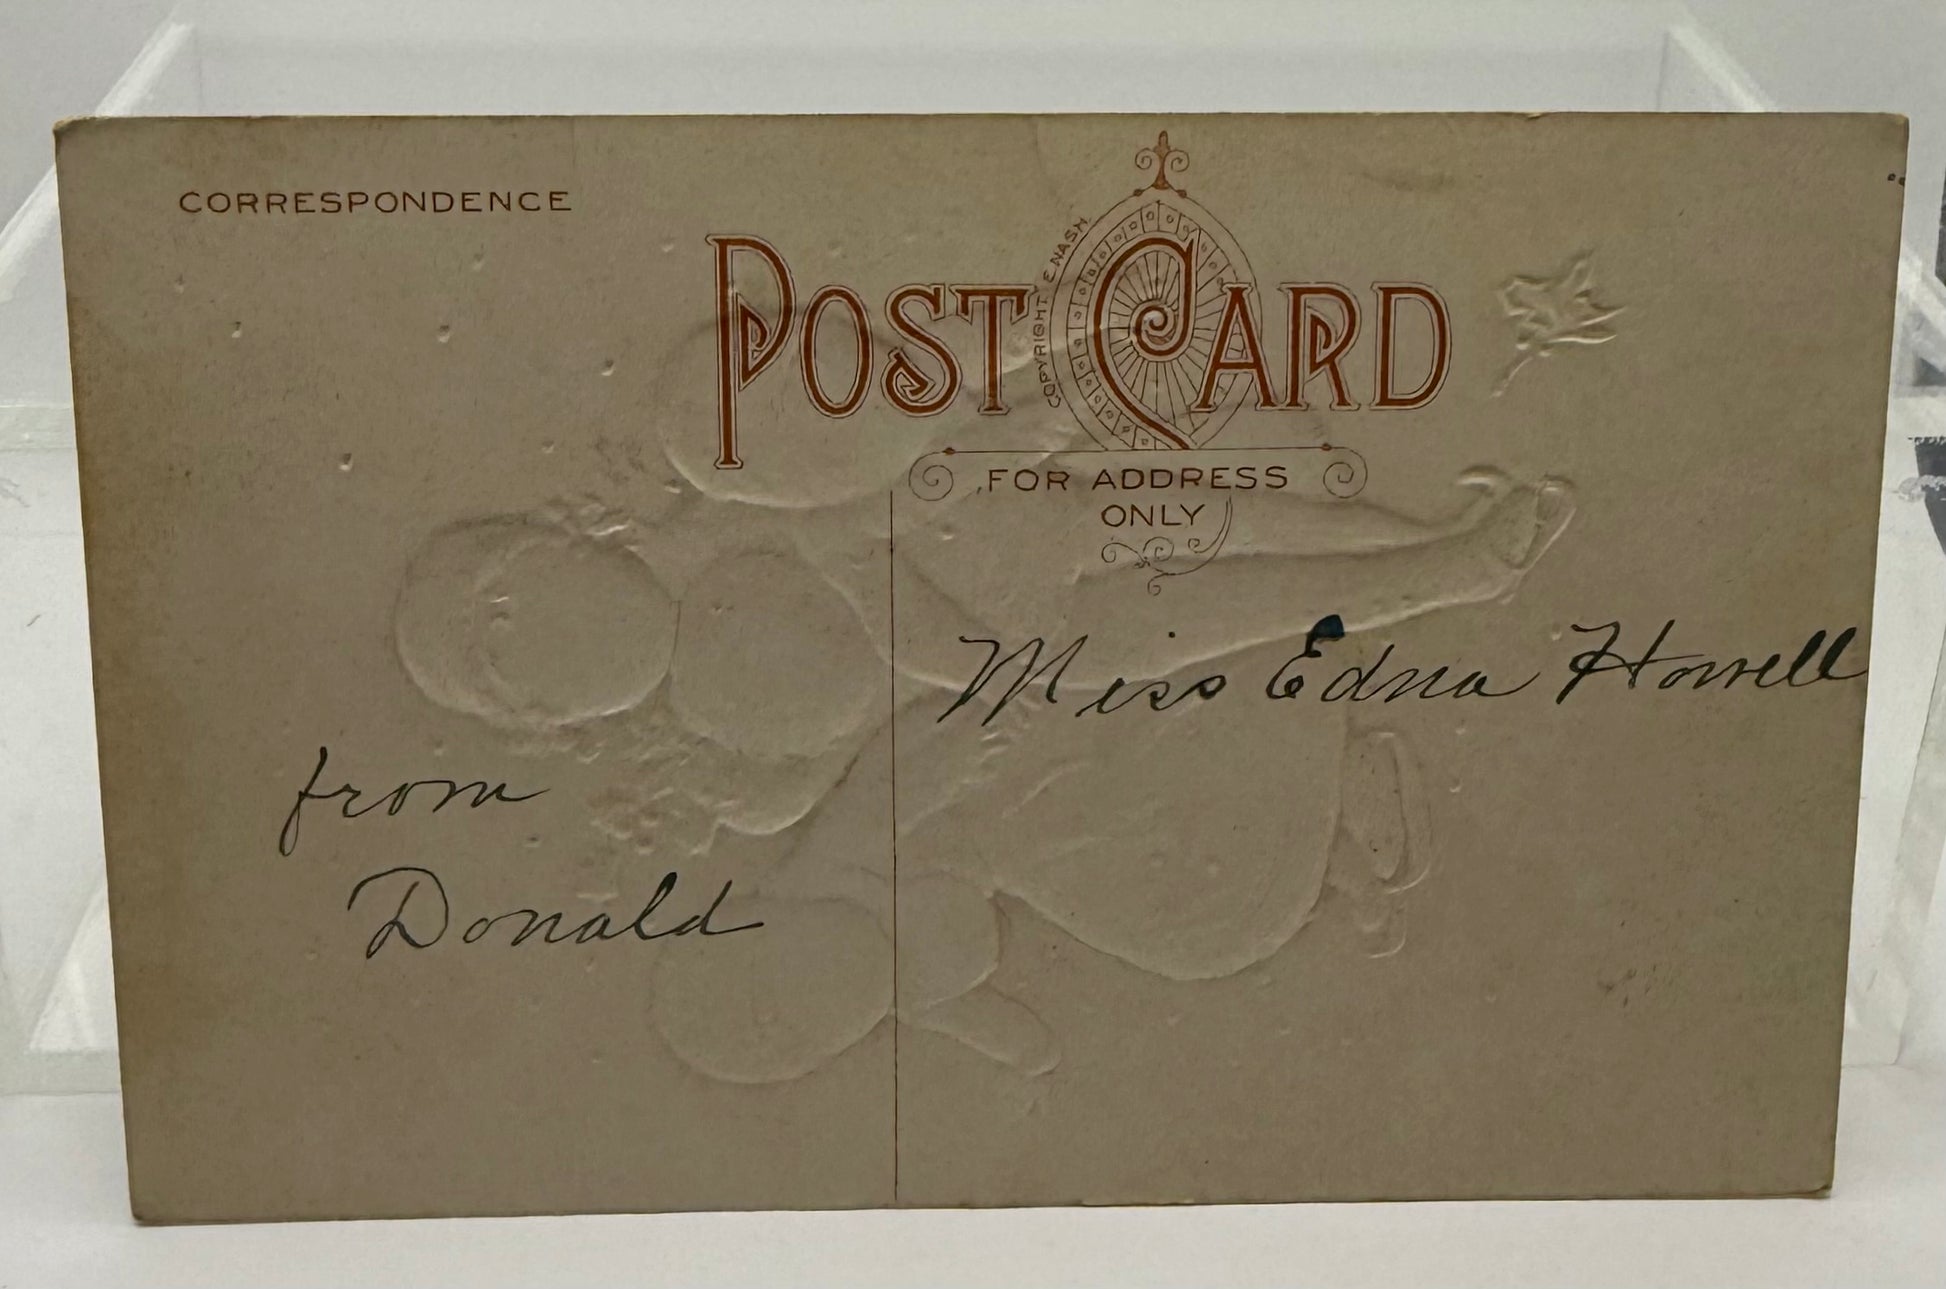 CORRESPONDENCE
POST CARD
COPYRIGHT E. NASH
FOR ADDRESS
ONLY
Miss Edna Howell
from
Donald